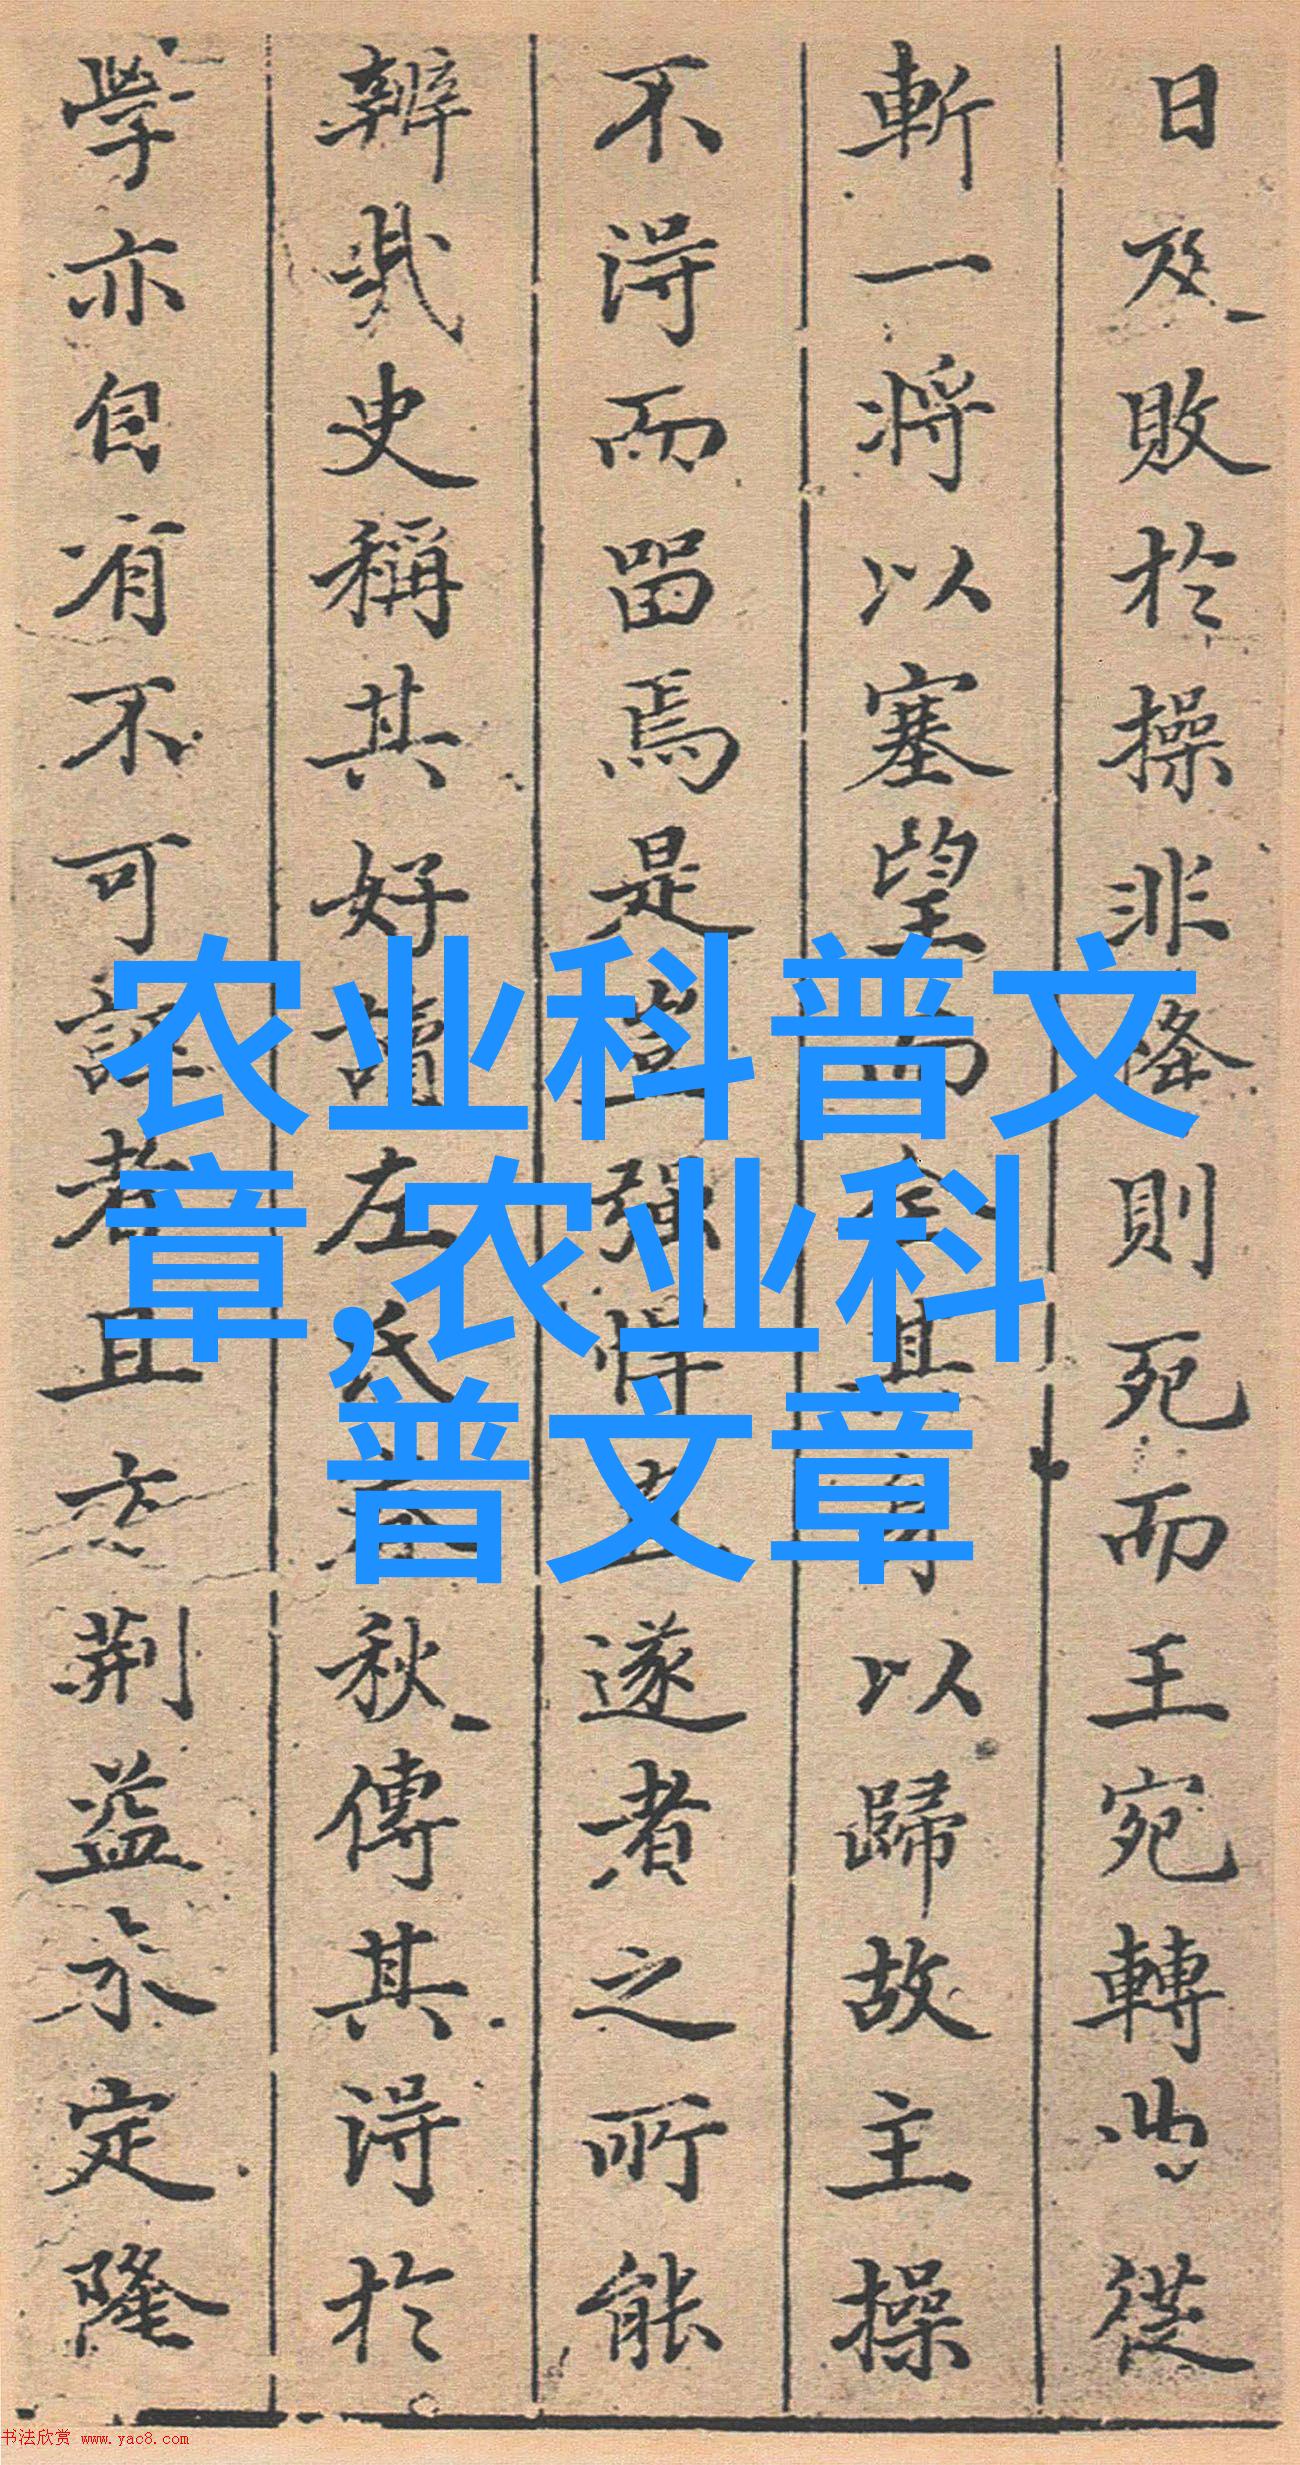 日及敗於操非降則死而王宛轉曲從
斬一將以塞望而全其身以歸故主操
不得而留焉是豈强悍直遂者之所能
辨哉史稱其好讀左氏春秋傳其得於
學亦自有不可誣者且方荊益未定隆
农业科普文
章,农业科
普文章
书法欣赏 www.yac8.com